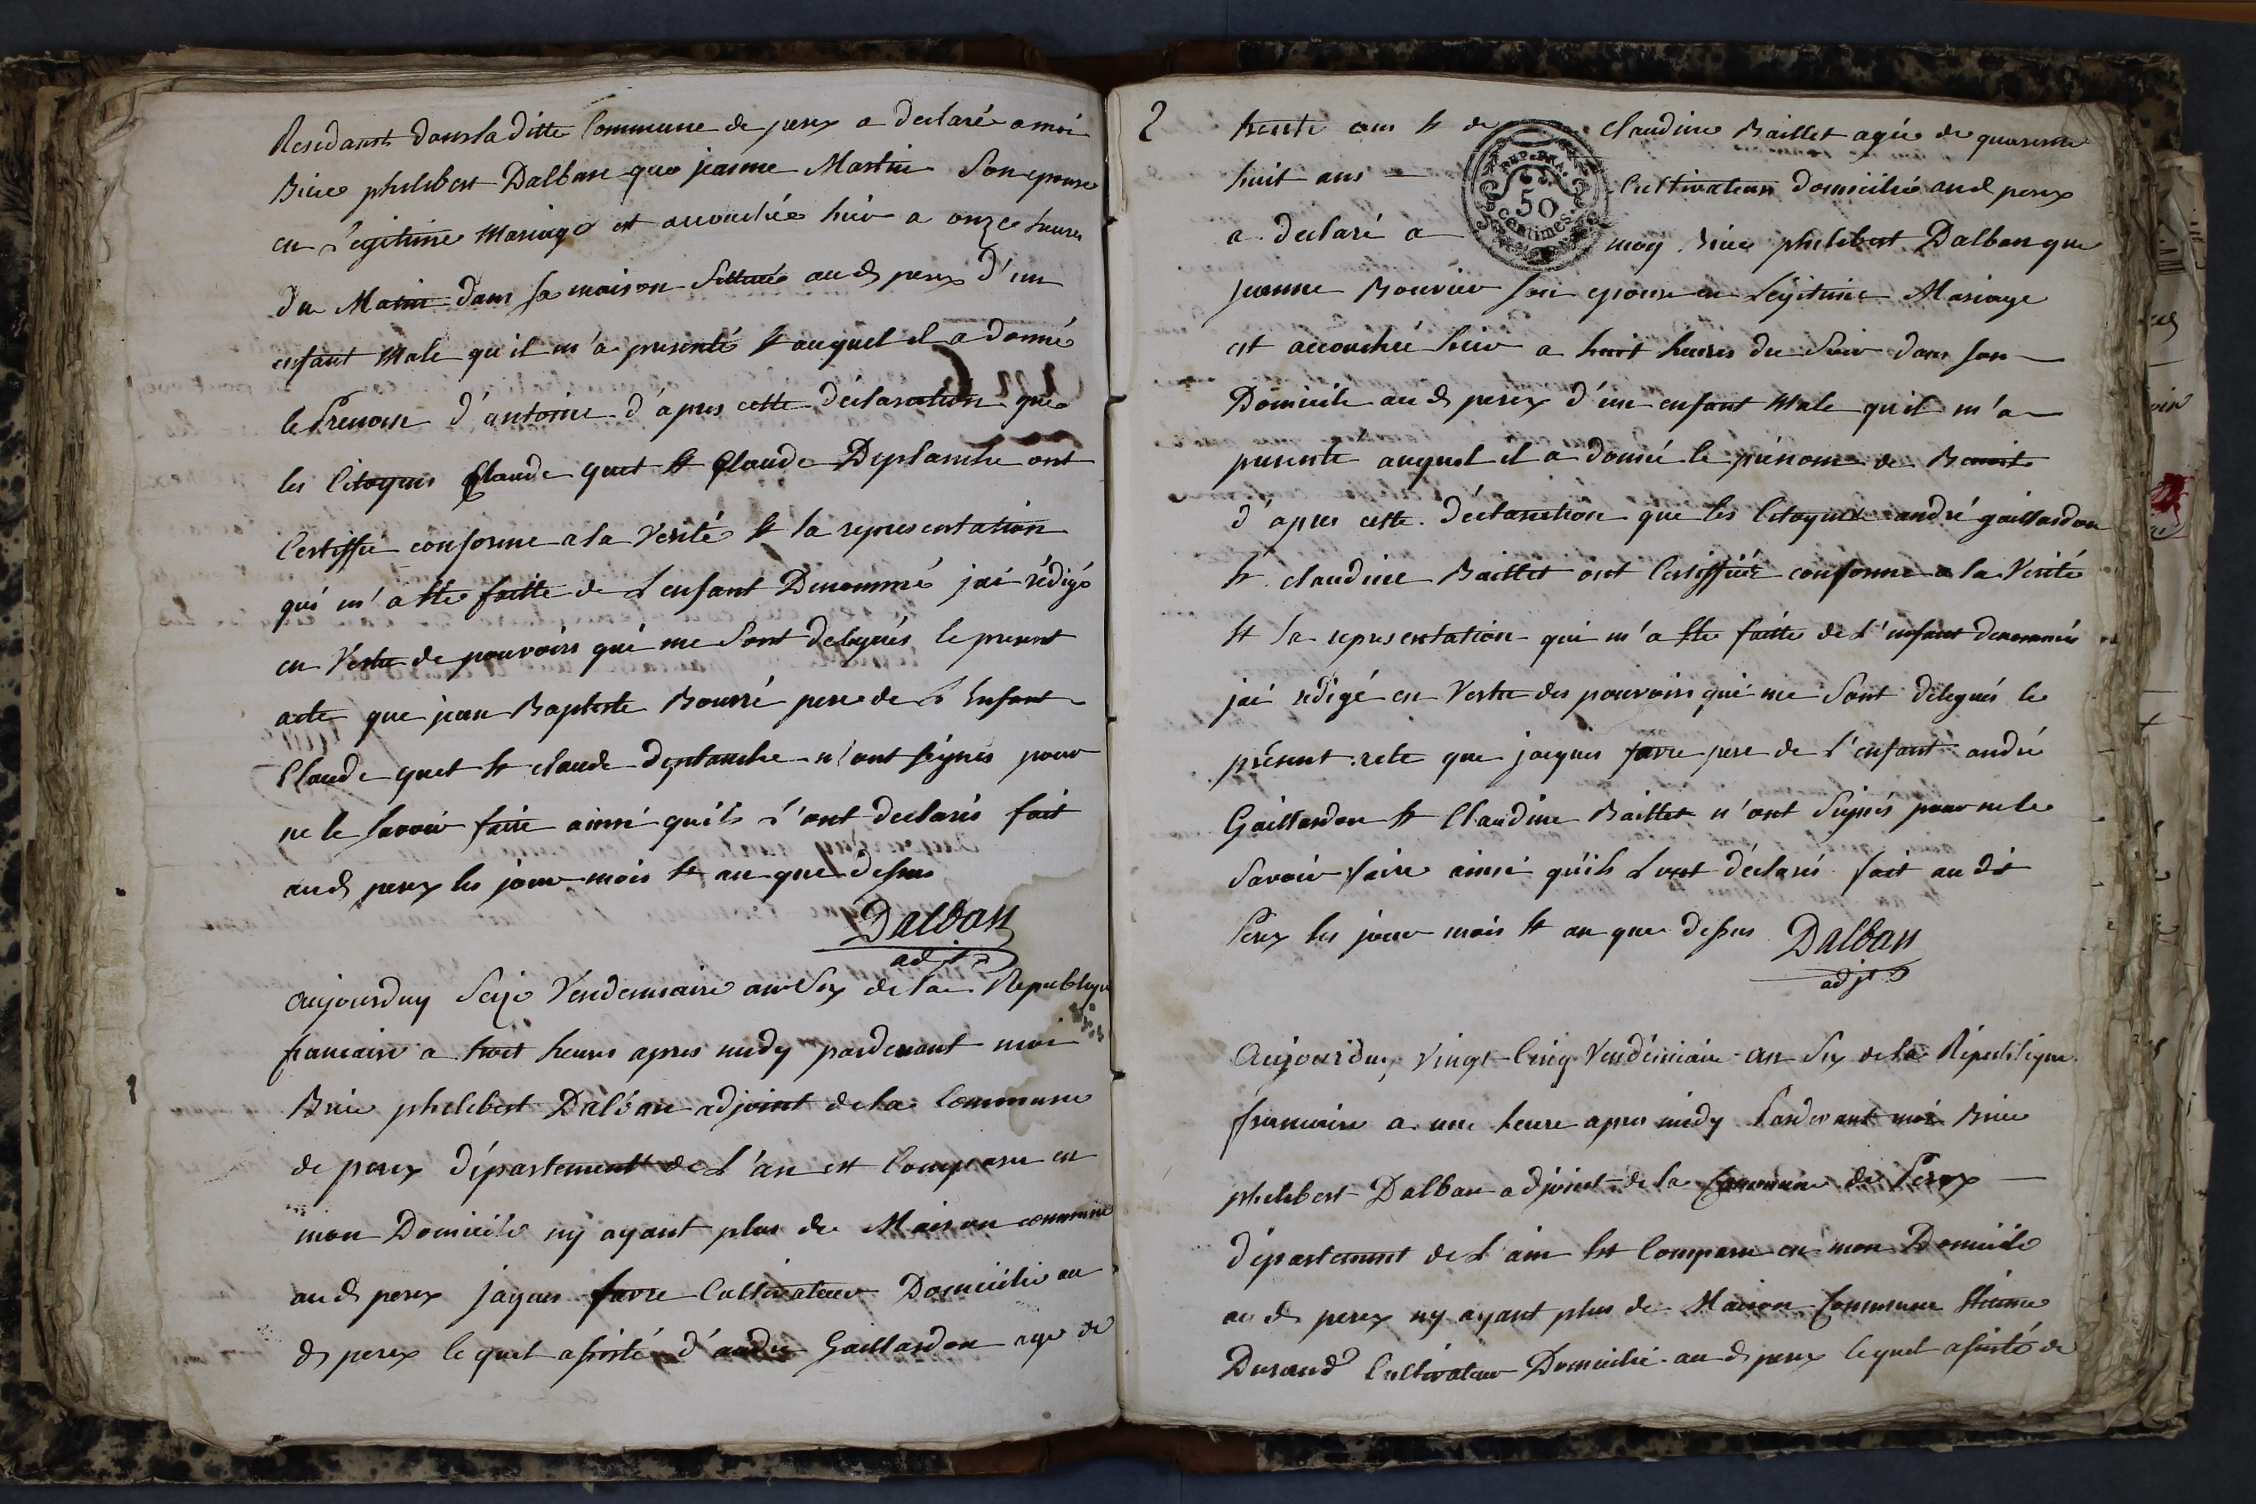 Residant dans la ditte Commune de perex a declaré a moi
Brice philibert Dalban que jeanne Martin Son epouse
en Legitime Mariage est accouchée hier a onze heures
du Matin dans sa maison Sittuée aud perex d'un
enfant Male qu'il m'a presenté & auquel il a donné
le Prenom d'antoine d'apres cette declaration que
les Citoyens Claude quet & Claude Deplanche ont
Certiffié conforme a la Verité & la representation
qui m'a Ete faitte de L'enfant Denommé jai rédigé
en Vertu de pouvoirs qui me Sont delegués le present
acte que jean Baptiste Bourré pere de L'Enfant
Claude quet & claude deplanche n'ont Signés pour
ne le Savoir faire ainsi qu'ils L'ont declarés fait
aud perex les jour mois & an que dessus
Dalban
adjt
aujourduy Seize Vendemiaire an Six de la Republique
francaise a huit heures apres midy pardevant moi
Brice philibert Dalban adjoint de la Commune
de perex département de L'ain est Comparu en
mon Domicile ny ayant plus de Maison commune
aud perex jaques favre Cultivateur Domicilié au
d perex lequel assisté d'andré Gaillardon age de
2
trente ans & de Claudine Baillet agée de quarante
huit ans Cultivateurs Domicilié aud perex
REP. FRA.
50
centimes.
a declaré a moy Brice philibert Dalban que
jeanne Bouvier son epouse en Légitime Mariage
est accouchée hier a huit heures du Soir dans son
Domicile aud perex d'un enfant Male qu'il m'a
presenté auquel il a donné le prénom de Benoit
d'apres cette déclaration que les Citoyens andré gaillardon
& claudine Baillet ont Certiffiée conforme a la Verité
& la representation qui m'a Ete faitte de L'enfant denommé
jai rédigé en Vertu des pouvoirs qui me Sont délegués le
présent acte que jacques favre pere de L'enfant andré
Gaillardon & Claudine Baillet n'ont Signés pour ne le
Savoir faire ainsi qu'ils L'ont déclarés fait au dt
Perex les jour mois & an que dessus Dalban
adjt
Aujourduy Vingt Cinq Vendémiaire an Six de la République
francaise a une heure apres midy Pardevant moi Brice
philibert Dalban adjoint de la Commune de Perex
département de L'ain Est Comparu en mon Domicile
au d perex ny ayant plus de Maison Commune Etienne
Durand Cultivateur Domicilié au d perex lequel assisté de